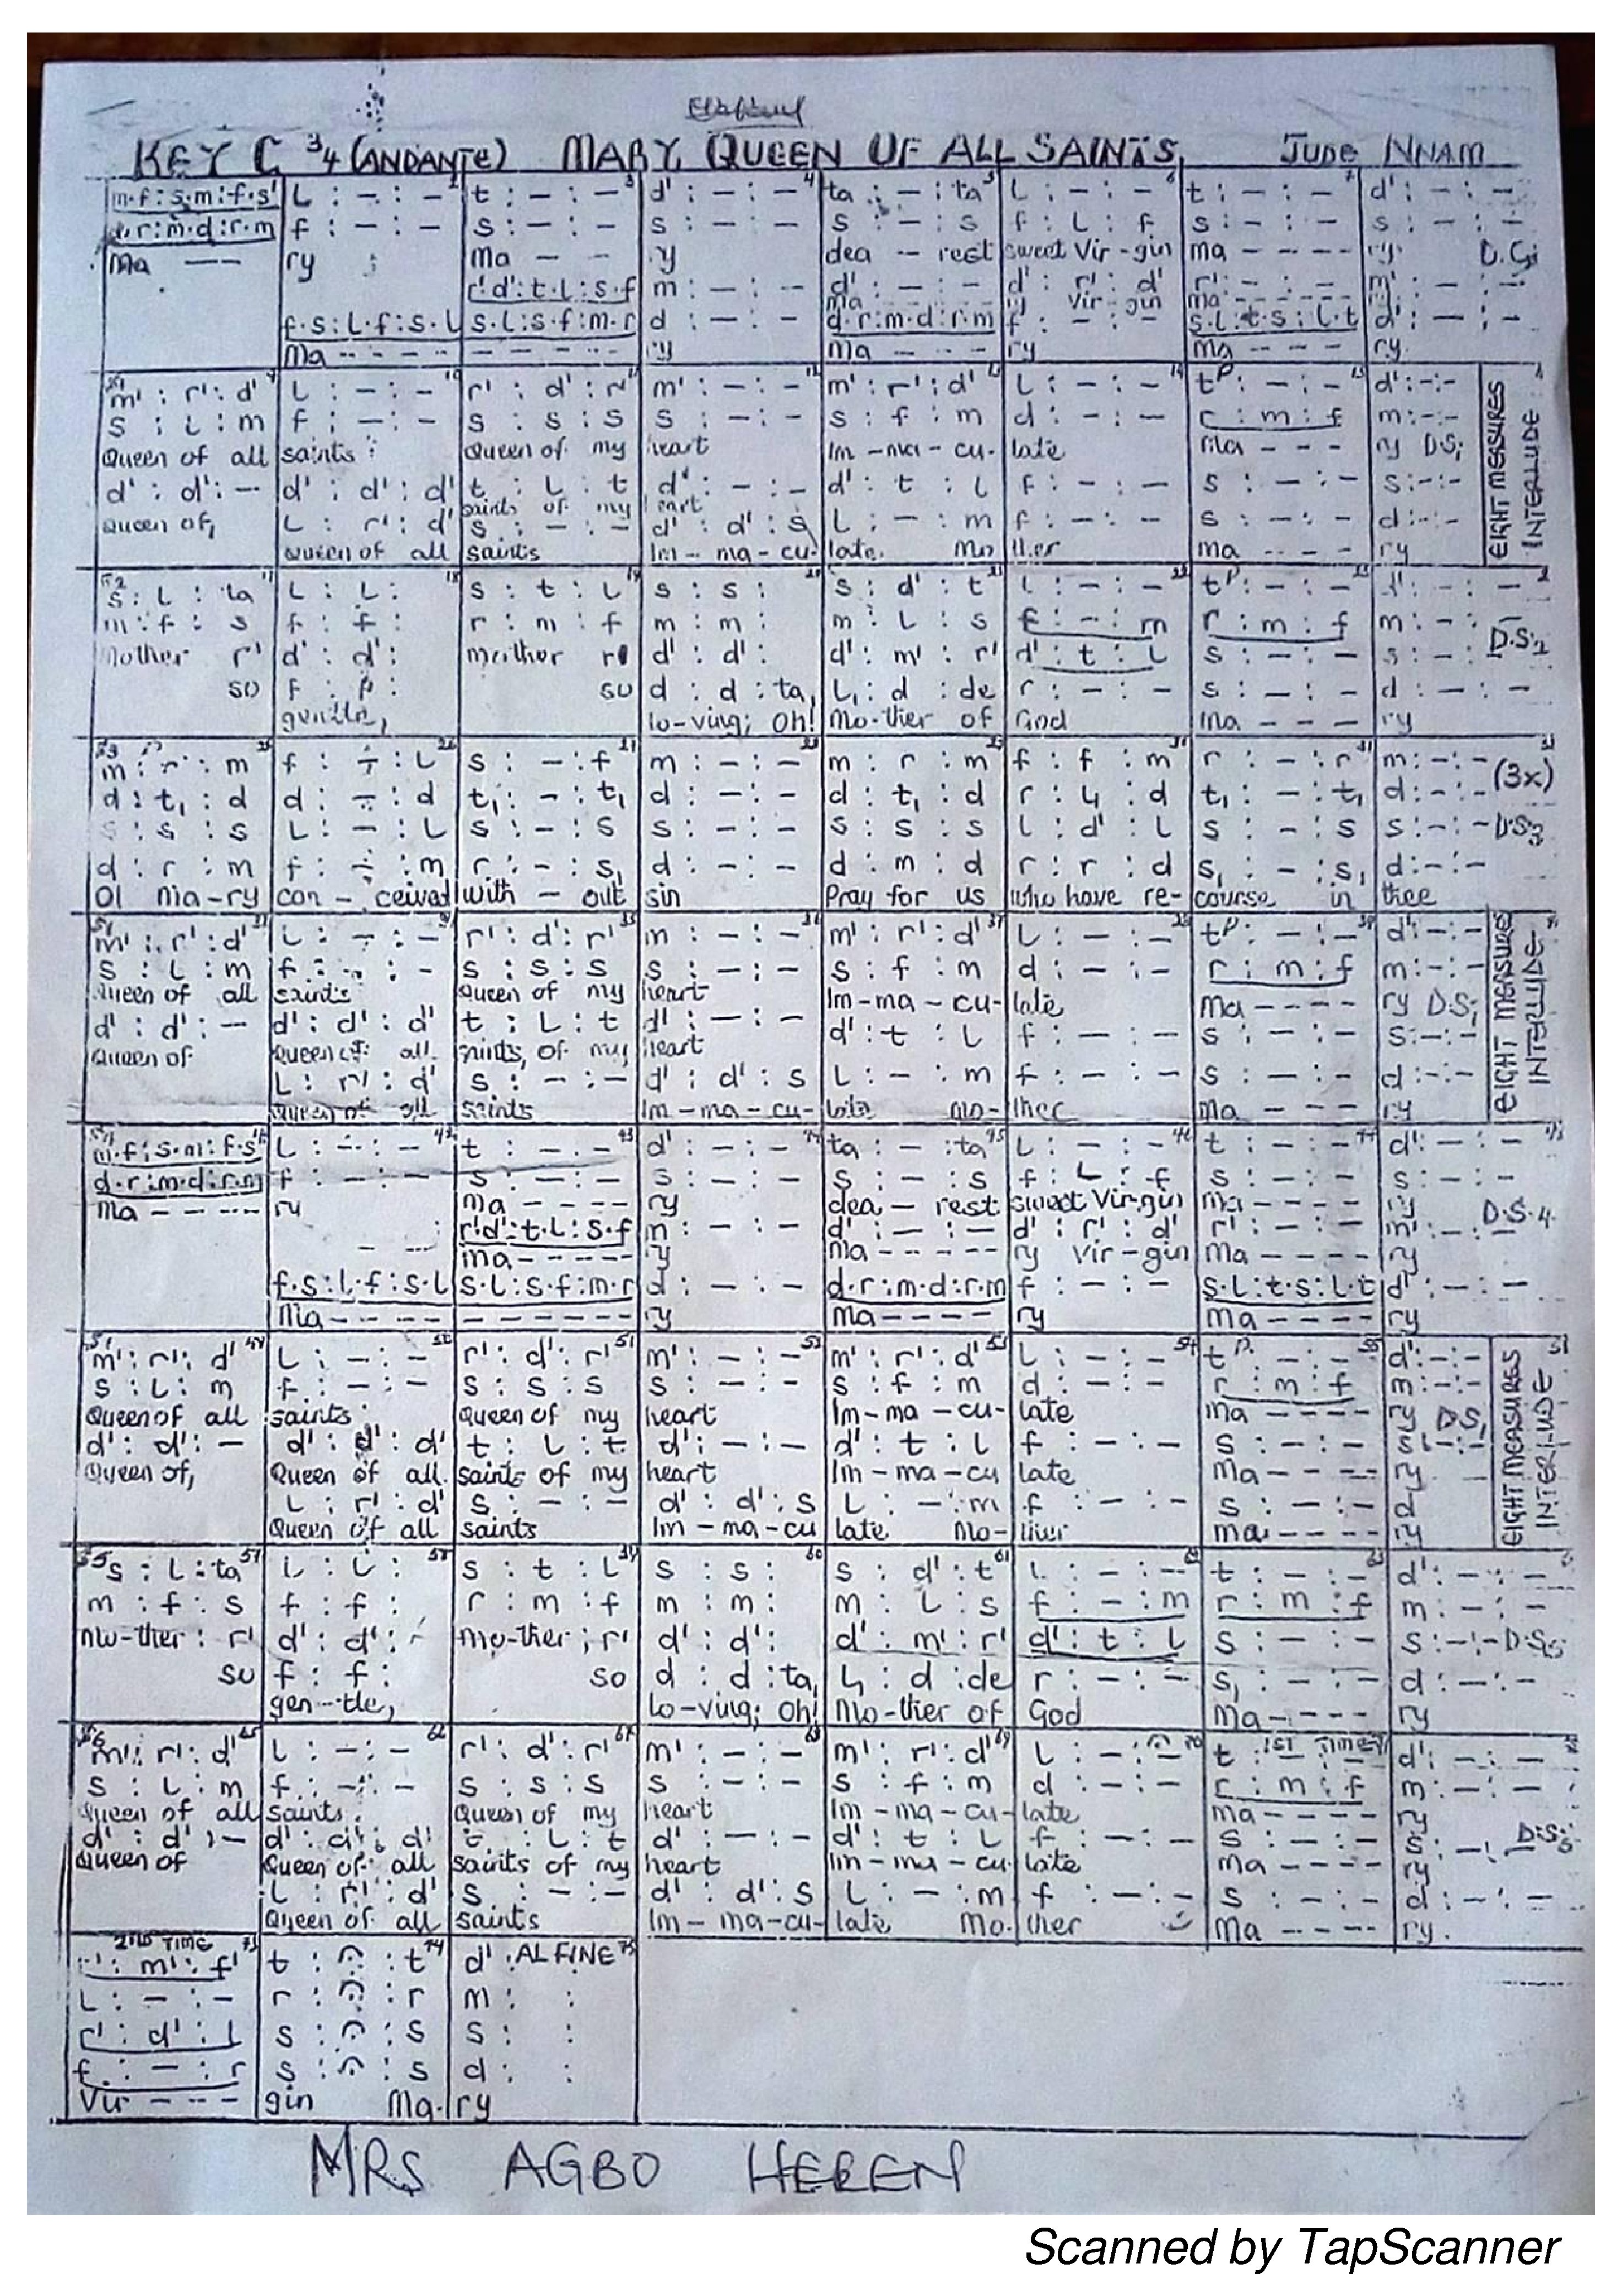 KEY C 3/4 (ANDANTE) MARY QUEEN OF ALL SAINTS JUDE NNAM
m.f:s.m:f.s' | L : – : – | t : – : – | d' : – : – | ta : – : ta | L : – : – | t : – : – | d' : – : –
d.r:m.d:r.m | f : – : – | s : – : – | s : – : – | s : – : s | f : L : f | s : – : – | s : – : –
Ma – – | ry | Ma – – | ry | dea – rest | sweet Vir-gin | ma - - - - | ry. D.C.
r'.d':t.L:s.f | m : – : – | d' : – : – | d' : r' : d' | r' : – : – | m' : – : –
ma - - - | ry Vir-gin | ma - - - -
f.s:L.f:s.L | s.L:s.f:m.r | d : – : – | d.r:m.d:r.m | f : – : – | s.L:t.s:L.t | d' : – : –
Ma - - - - | - - - - - | ry | Ma - - - | ry | ma - - - | ry.
m' : r' : d' | L : – : – | r' : d' : r' | m' : – : – | m' : r' : d' | L : – : – | t : – : – | d' : – : –
s : L : m | f : – : – | s : s : s | s : – : – | s : f : m | d : – : – | r : m : f | m : – : –
Queen of all | saints | Queen of my | heart | Im-ma-cu- | late | Ma - - - | ry D.S.
d' : d' : – | d' : d' : d' | t : L : t | d' : – : – | d' : t : L | f : – : – | s : – : – | s : – : –
Queen of, | saints of my | heart
L : r' : d' | s : – : – | d' : d' : s | L : – : m | f : – : – | s : – : – | d : – : –
Queen of all | saints | Im-ma-cu- | late. Mo | ther | Ma - - - | ry
EIGHT MEASURES
INTERLUDE
s : L : ta | L : L : | s : t : L | s : s : | s : d' : t | L : – : – | t : – : – | d' : – : –
m : f : s | f : f : | r : m : f | m : m : | m : L : s | f : – : m | r : m : f | m : – : –
Mother r' | d' : d' : | mother r' | d' : d' : | d' : m' : r' | d' : t : L | s : – : – | s : – : – D.S.2
so | f : f : | so | d : d : ta, | L, : d : de | r : – : – | s : – : – | d : – : –
gentle, | lo-ving; Oh! | Mo-ther of | God | Ma - - - | ry
m : r : m | f : – : L | s : – : f | m : – : – | m : r : m | f : f : m | r : – : r | m : – : – (3x)
d : t, : d | d : – : d | t, : – : t, | d : – : – | d : t, : d | r : L, : d | t, : – : t, | d : – : –
s : s : s | L : – : L | s : – : s | s : – : – | s : s : s | L : d' : L | s : – : s | s : – : – D.S3
d : r : m | f : – : m | r : – : s, | d : – : – | d : m : d | r : r : d | s, : – : s, | d : – : –
O! Ma-ry | con-ceived | with – out | sin | Pray for us | who have re- | course in | thee
m' : r' : d' | L : – : – | r' : d' : r' | m : – : – | m' : r' : d' | L : – : – | t : – : – | d' : – : –
s : L : m | f : – : – | s : s : s | s : – : – | s : f : m | d : – : – | r : m : f | m : – : –
Queen of all | saints | Queen of my | heart | Im-ma-cu- | late | Ma - - - - | ry D.S,
d' : d' : – | d' : d' : d' | t : L : t | d' : – : – | d' : t : L | f : – : – | s : – : – | s : – : –
Queen of | Queen of all | saints, of my | heart
L : r' : d' | s : – : – | d' : d' : s | L : – : m | f : – : – | s : – : – | d : – : –
Queen of all | saints | Im-ma-cu- | late Mo- | ther | Ma - - - | ry
EIGHT MEASURES
INTERLUDE
m.f:s.m:f.s' | L : – : – | t : – : – | d' : – : – | ta : – : ta | L : – : – | t : – : – | d' : – : –
d.r:m.d:r.m | f : – : – | s : – : – | s : – : – | s : – : s | f : L : f | s : – : – | s : – : –
Ma - - - - - | ry | ma - - - - | ry | dea – rest | sweet Virgin | ma - - - - | ry D.S.4.
r'.d':t.L:s.f | m : – : – | d' : – : – | d' : r' : d' | r' : – : – | m' : – : –
ma - - - - - | ry | ma - - - - - | ry Vir-gin | Ma - - - - | ry
f.s:L.f:s.L | s.L:s.f:m.r | d : – : – | d.r:m.d:r.m | f : – : – | s.L:t.s:L.t | d' : – : –
Ma - - - - | - - - - - - | ry | Ma - - - - | ry | Ma - - - - | ry
m' : r' : d' | L : – : – | r' : d' : r' | m' : – : – | m' : r' : d' | L : – : – | t : – : – | d' : – : –
s : L : m | f : – : – | s : s : s | s : – : – | s : f : m | d : – : – | r : m : f | m : – : –
Queen of all | saints | Queen of my | heart | Im-ma-cu- | late | ma - - - - | ry D.S,
d' : d' : – | d' : d' : d' | t : L : t | d' : – : – | d' : t : L | f : – : – | s : – : – | s : – : –
Queen of, | Queen of all | saints of my | heart | Im-ma-cu | late | Ma - - - - | ry
L : r' : d' | s : – : – | d' : d' : s | L : – : m | f : – : – | s : – : – | d
Queen of all | saints | Im-ma-cu | late Mo- | ther | ma - - - - | ry
EIGHT MEASURES
INTERLUDE
s : L : ta | L : L : | s : t : L | s : s : | s : d' : t | L : – : – | t : – : – | d' : – : –
m : f : s | f : f : | r : m : f | m : m : | m : L : s | f : – : m | r : m : f | m : – : –
Mo-ther : r' | d' : d' : | Mo-ther ; r' | d' : d' : | d' : m' : r' | d' : t : L | s : – : – | s : – : – D.S5
so | f : f : | so | d : d : ta, | L, : d : de | r : – : – | s, : – : – | d : – : –
gen-tle, | lo-ving; Oh! | Mo-ther of | God | Ma - - - - | ry
m' : r' : d' | L : – : – | r' : d' : r' | m' : – : – | m' : r' : d' | L : – : – | t 1ST TIME | d' : – : –
s : L : m | f : – : – | s : s : s | s : – : – | s : f : m | d : – : – | r : m : f | m : – : –
Queen of all | saints. | Queen of my | heart | Im-ma-cu- | late | ma - - - - | ry
d' : d' : – | d' : d' : d' | t : L : t | d' : – : – | d' : t : L | f : – : – | s : – : – | s : – : – D.S5
Queen of | Queen of all | saints of my | heart | Im-ma-cu- | late | ma - - - - | ry
L : r' : d' | s : – : – | d' : d' : s | L : – : m | f : – : – | s : – : – | d : – : –
Queen of all | saints | Im-ma-cu- | late Mo- | ther | Ma - - - - | ry.
2ND TIME
m' : f' | t : : t | d' : AL FINE
L : – : – | r : : r | m : :
r' : d' : L | s : : s | s : :
f : – : r | s : : s | d : :
Vir - - - | gin Ma- | ry
MRS AGBO HELEN
Scanned by TapScanner